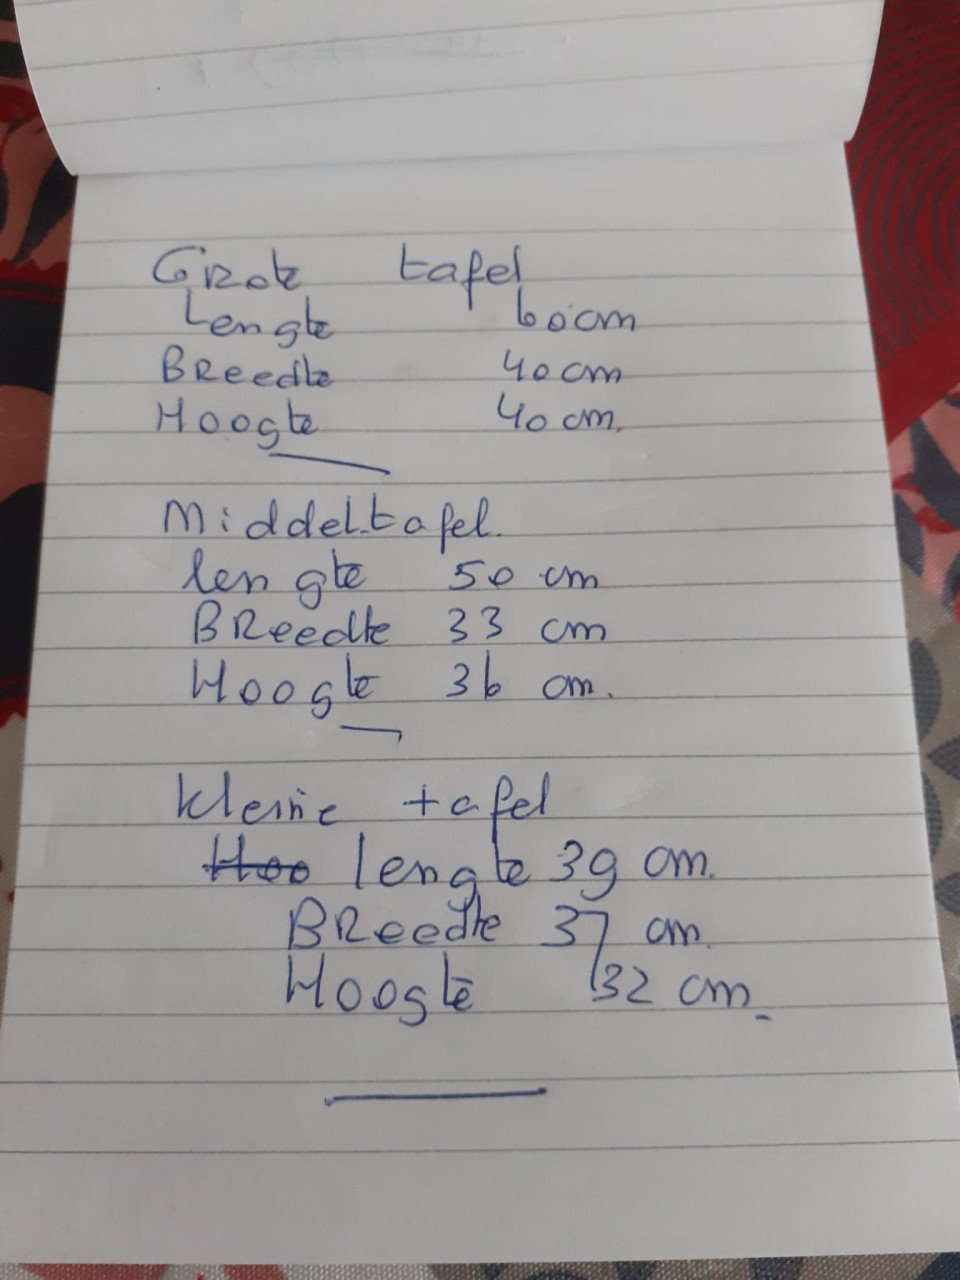 Grote tafel
Lengte 60 cm
Breedte 40 cm
Hoogte 40 cm.
Middel tafel.
lengte 50 cm
Breedte 33 cm
Hoogte 36 cm.
kleine tafel
Hoo lengte 39 cm.
Breedte 37 cm.
Hoogte 32 cm.